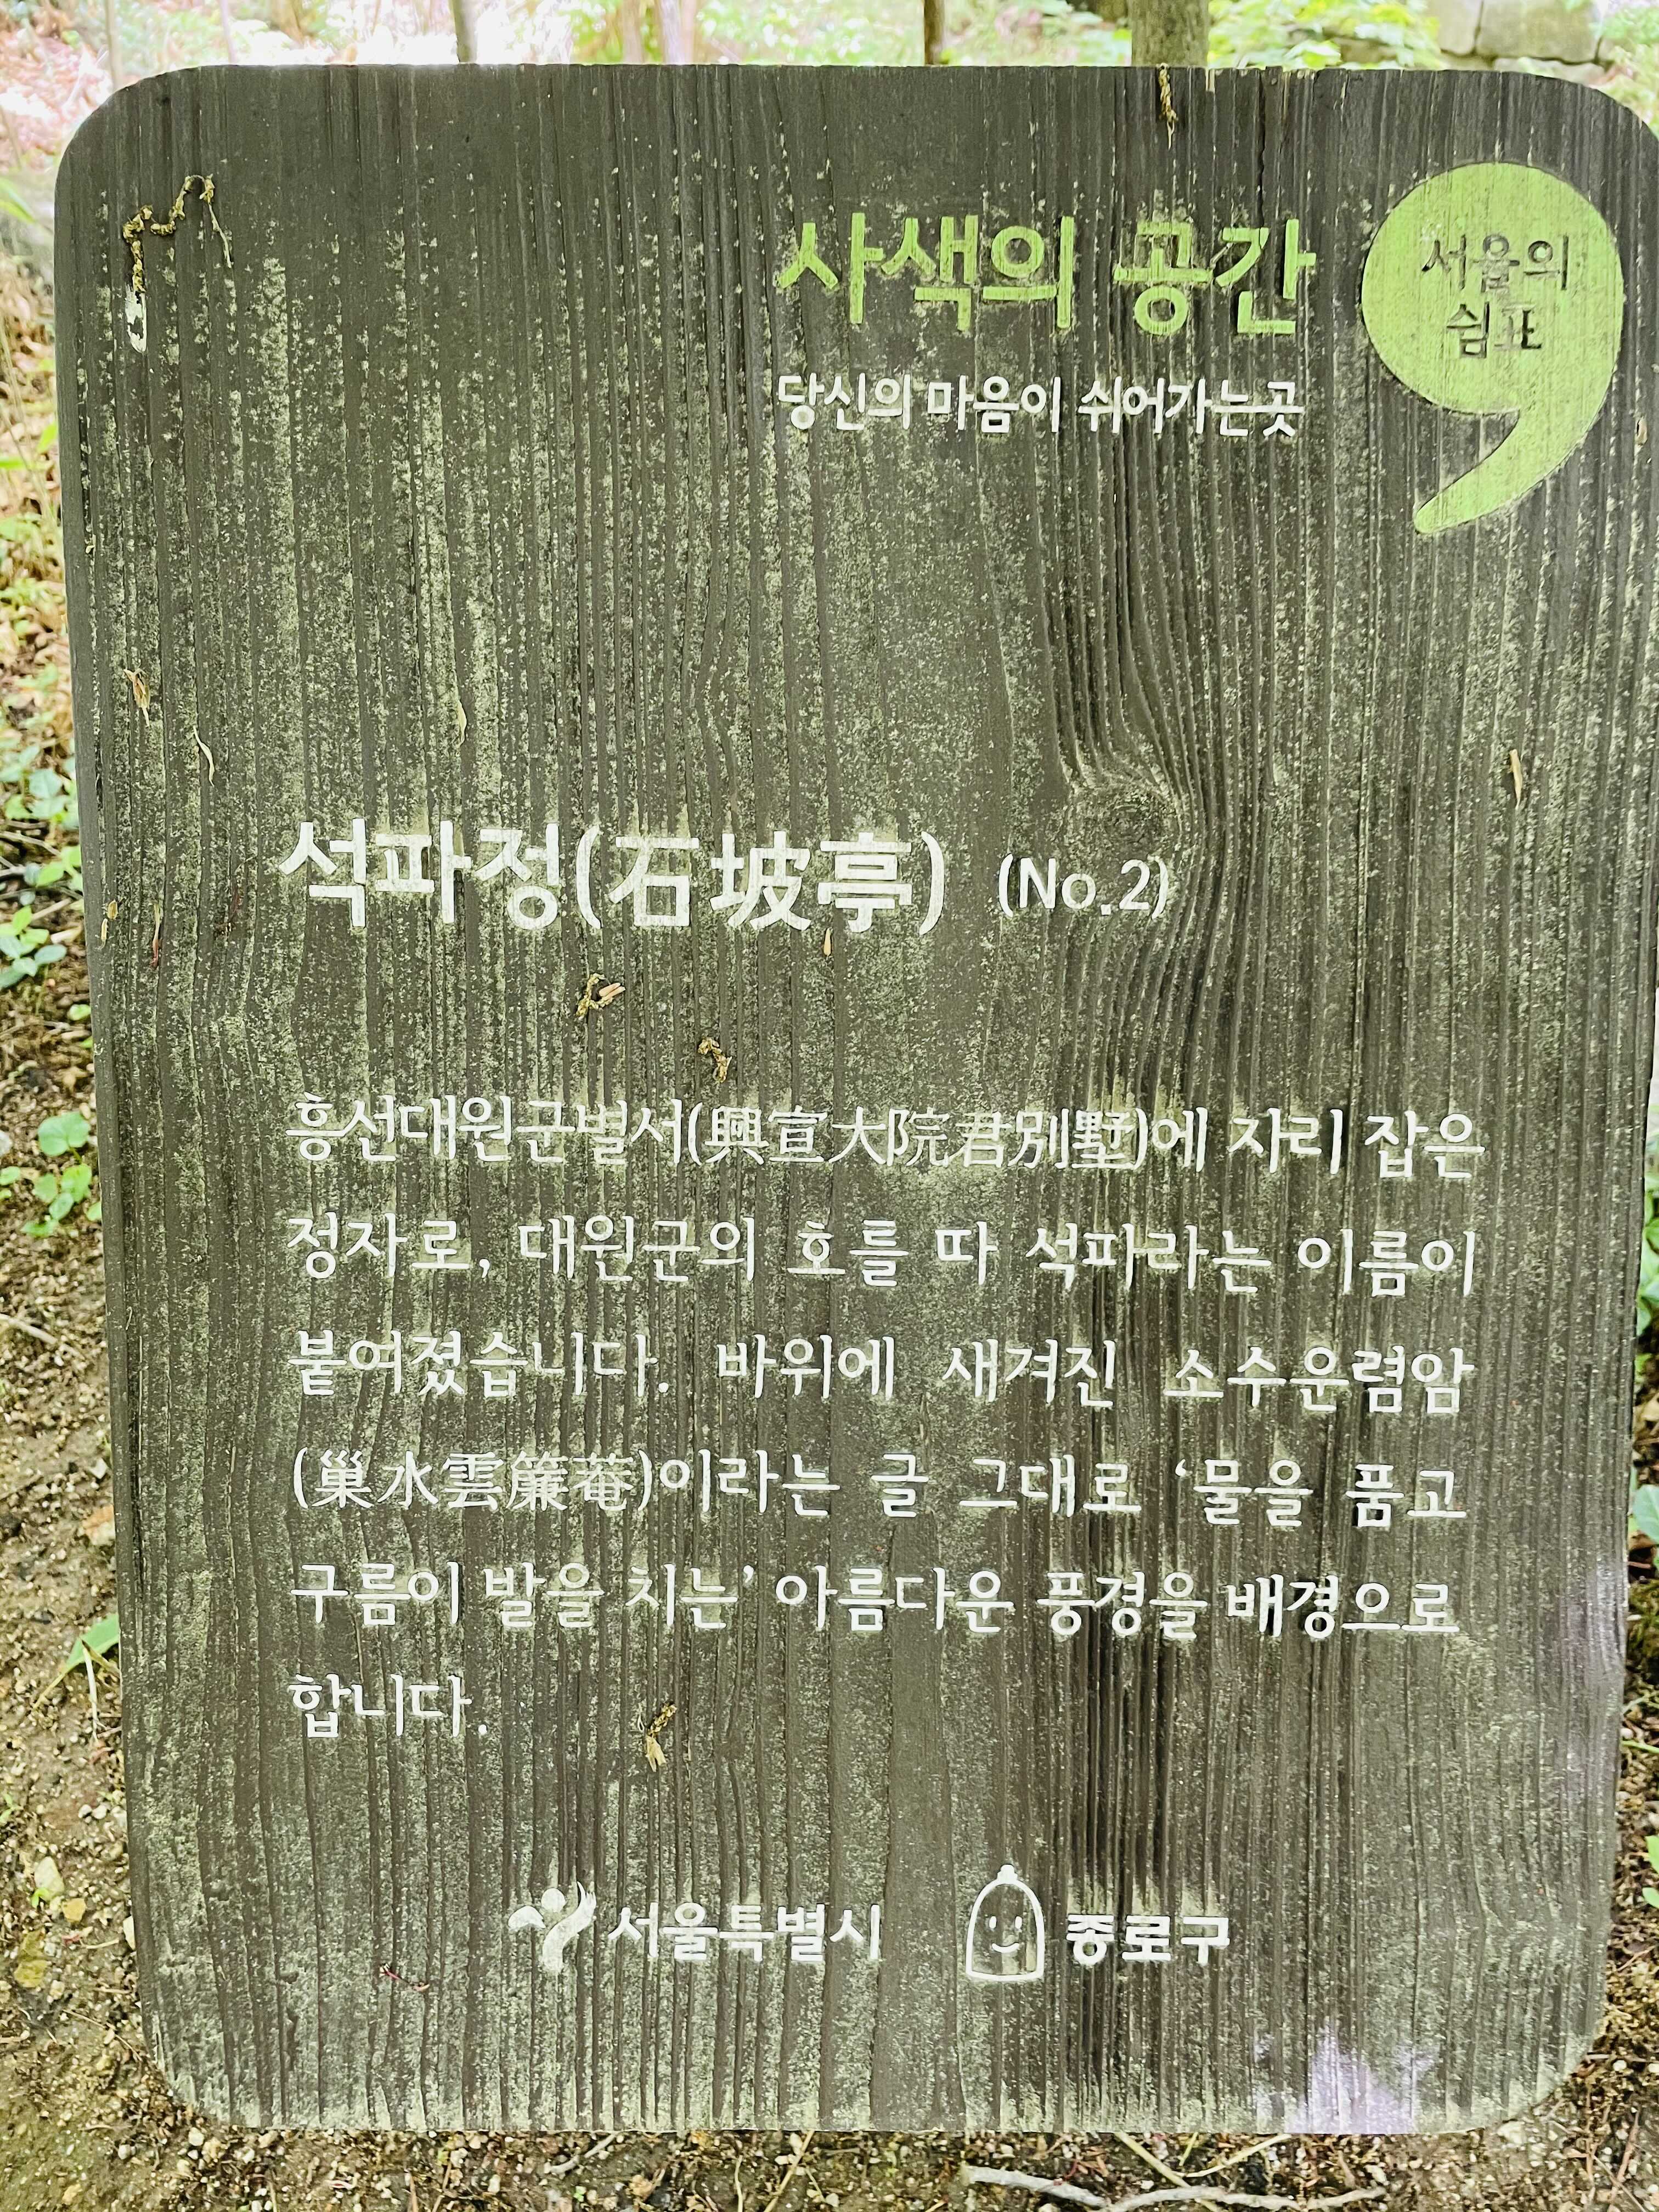 사색의 공간
당신의 마음이 쉬어가는곳
서울의
쉼표
석파정(石坡亭) (No.2)
흥선대원군별서(興宣大院君別墅)에 자리 잡은
정자로, 대원군의 호를 따 석파라는 이름이
붙여졌습니다. 바위에 새겨진 소수운렴암
(巢水雲簾菴)이라는 글 그대로 ‘물을 품고
구름이 발을 치는’ 아름다운 풍경을 배경으로
합니다.
서울특별시 종로구